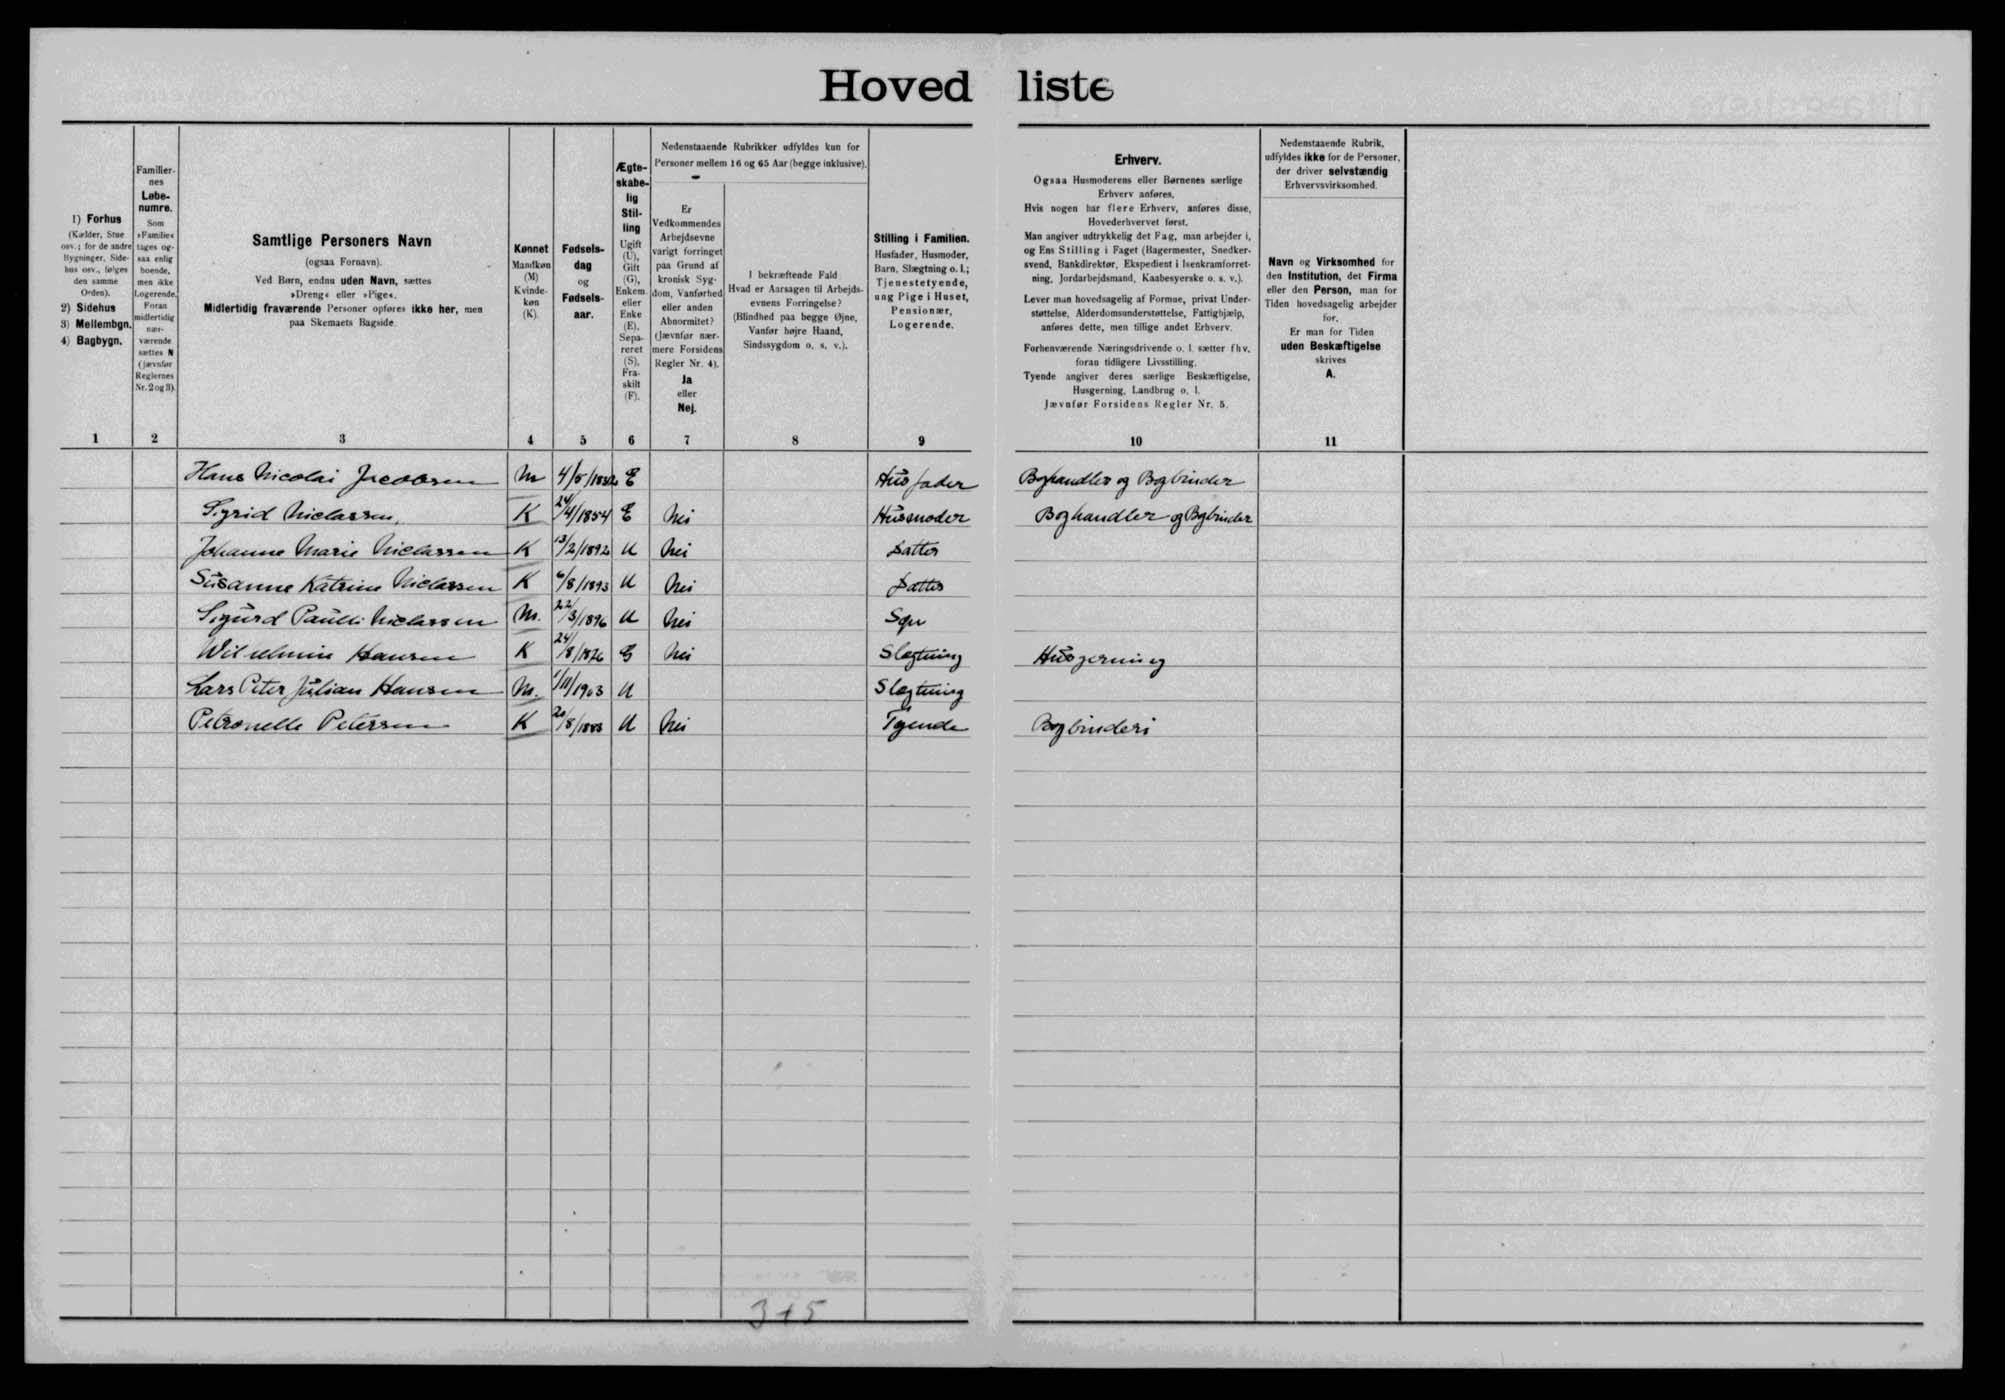 Hovedliste
1) Forhus
(Kælder, Stue
osv.; for de andre
Bygninger, Side-
hus osv., følges
den samme
Orden).
2) Sidehus
3) Mellembgn.
4) Bagbygn.
Familier-
nes
Løbe-
numre.
Som
»Familie«
tages og-
saa enlig
boende,
men ikke
Logerende.
Foran
midlertidig
nær-
værende
sættes N
(jævnfør
Reglernes
Nr. 2 og 3).
Samtlige Personers Navn
(ogsaa Fornavn).
Ved Børn, endnu uden Navn, sættes
»Dreng« eller »Pige«.
Midlertidig fraværende Personer opføres ikke her, men
paa Skemaets Bagside.
Kønnet
Mandkøn
(M)
Kvinde-
køn
(K).
Fødsels-
dag
og
Fødsels-
aar.
Ægte-
skabe-
lig
Stil-
ling
Ugift
(U),
Gift
(G),
Enkem.
eller
Enke
(E),
Sepa-
reret
(S),
Fra-
skilt
(F).
Nedenstaaende Rubrikker udfyldes kun for
Personer mellem 16 og 65 Aar (begge inklusive).
Er
Vedkommendes
Arbejdsevne
varigt forringet
paa Grund af
kronisk Syg-
dom, Vanførhed
eller anden
Abnormitet?
(Jævnfør nær-
mere Forsidens
Regler Nr. 4).
Ja
eller
Nej.
I bekræftende Fald:
Hvad er Aarsagen til Arbejds-
evnens Forringelse?
(Blindhed paa begge Øjne,
Vanfør højre Haand,
Sindssygdom o. s. v.).
Stilling i Familien.
Husfader, Husmoder,
Barn, Slægtning o. l.;
Tjenestetyende,
ung Pige i Huset,
Pensionær,
Logerende.
Erhverv.
Ogsaa Husmoderens eller Børnenes særlige
Erhverv anføres.
Hvis nogen har flere Erhverv, anføres disse,
Hovederhvervet først.
Man angiver udtrykkelig det Fag, man arbejder i,
og Ens Stilling i Faget (Bagermester, Snedker-
svend, Bankdirektør, Ekspedient i Isenkramforret-
ning, Jordarbejdsmand, Kaabesyerske o. s. v.).
Lever man hovedsagelig af Formue, privat Under-
støttelse, Alderdomsunderstøttelse, Fattighjælp,
anføres dette, men tillige andet Erhverv.
Forhenværende Næringsdrivende o. l. sætter fhv.
foran tidligere Livsstilling.
Tyende angiver deres særlige Beskæftigelse,
Husgerning, Landbrug o. l.
Jævnfør Forsidens Regler Nr. 5.
Nedenstaaende Rubrik,
udfyldes ikke for de Personer,
der driver selvstændig
Erhvervsvirksomhed.
Navn og Virksomhed for
den Institution, det Firma
eller den Person, man for
Tiden hovedsagelig arbejder
for.
Er man for Tiden
uden Beskæftigelse
skrives
A.
1 2 3 4 5 6 7 8 9 10 11
Hans Nicolai Jacobsen M 4/5/1832 E Husfader Boghandler og Bogbinder
Sigrid Niclassen, K 24/4/1854 E Nei Husmoder Boghandler og Bogbinder
Johanne Marie Niclassen K 13/2/1892 U Nei Datter
Susanne Katrine Niclassen K 6/8/1893 U Nei Datter
Sigurd Paulli Niclassen M. 22/3/1896 U Nei Søn
Wilhelmine Hansen K 24/8/1876 G Nei Slægtning Husgerning
Lars Peter Julian Hansen M. 1/11/1903 U Slægtning
Petronelle Petersen K 20/8/1883 U Nei Tyende Bogbinderi
3+5